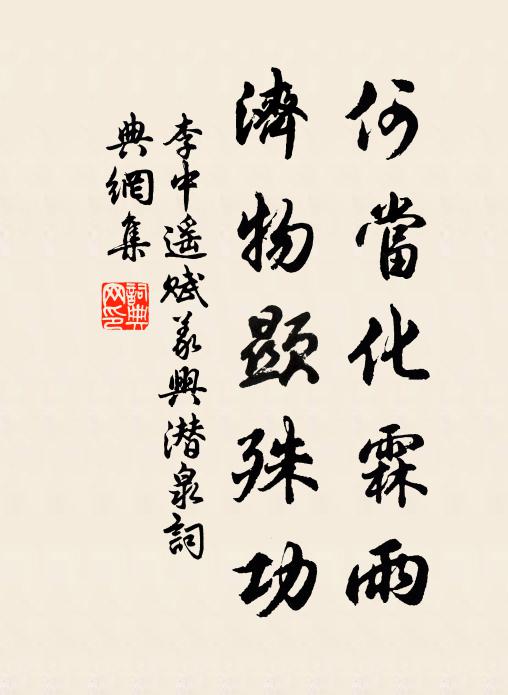 何當化霖雨
濟物顯殊功
李中遥賦義興潛泉詞
典網集
詞典
網印